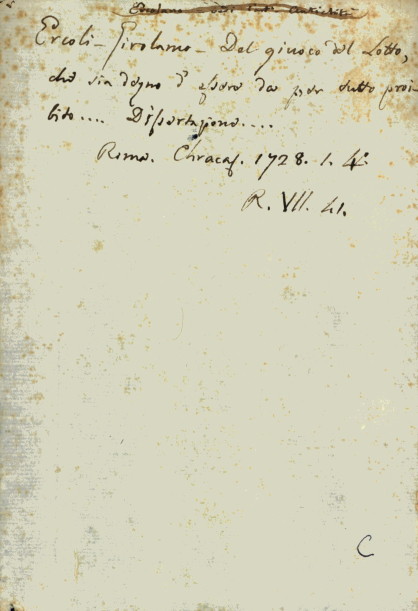 Ercoli - Girolamo - Del giuoco del Lotto,
che sia degno d'essere da per tutto proi-
bito.... Dissertazione....
Roma. Chracas. 1728. 1. 4.
R. VII. 41.
C